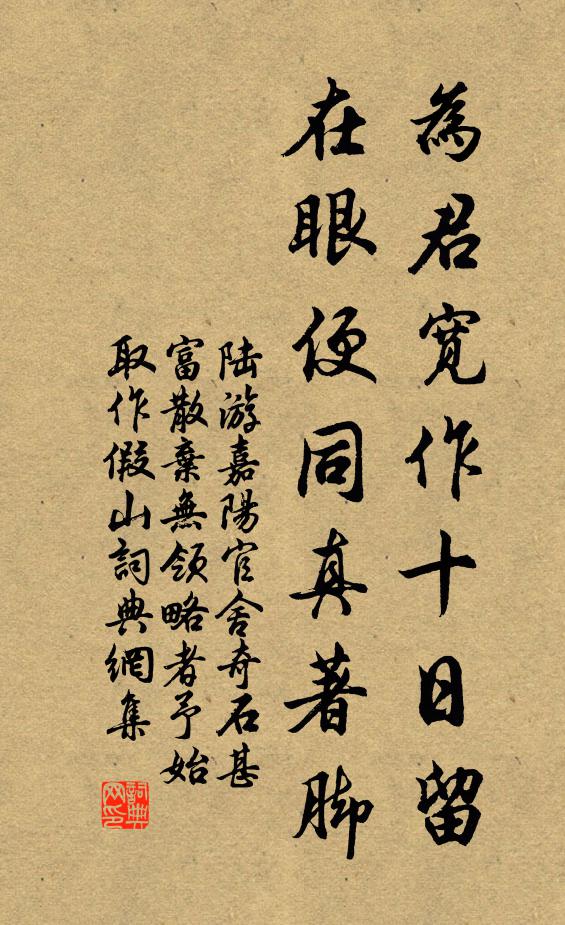 為君寬作十日留
在眼便同真著脚
陆游嘉陽官舍奇石甚
富散棄無領略者予始
取作假山詞典網集
詞典网印